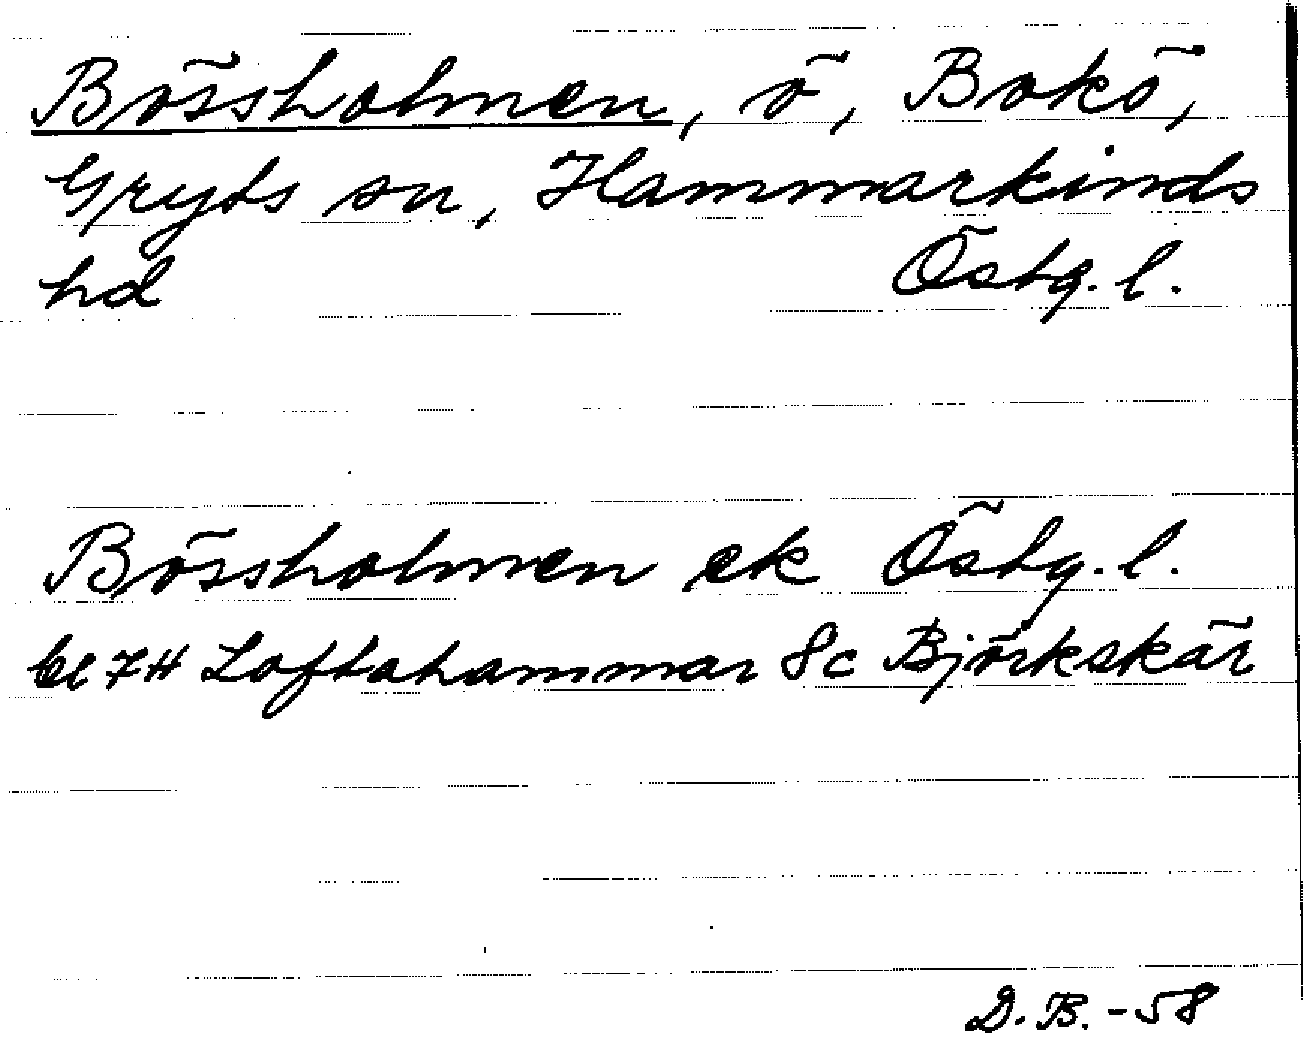 Bössholmen, ö, Bokö,
Gryts sn, Hammarkinds
hd Östg. l.
Bössholmen ek Östg. l.
bl 7H Loftahammar 8c Björkskär
D. B. - 58